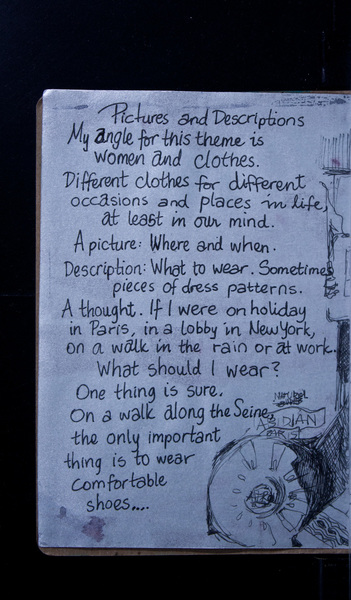 Pictures and Descriptions
My angle for this theme is
women and clothes.
Different clothes for different
occasions and places in life,
at least in our mind.
A picture: Where and when.
Description: What to wear. Sometimes
pieces of dress patterns.
A thought. If I were on holiday
in Paris, in a lobby in New York,
on a walk in the rain or at work..
What should I wear?
One thing is sure.
On a walk along the Seine,
the only important
thing is to wear
comfortable
shoes....